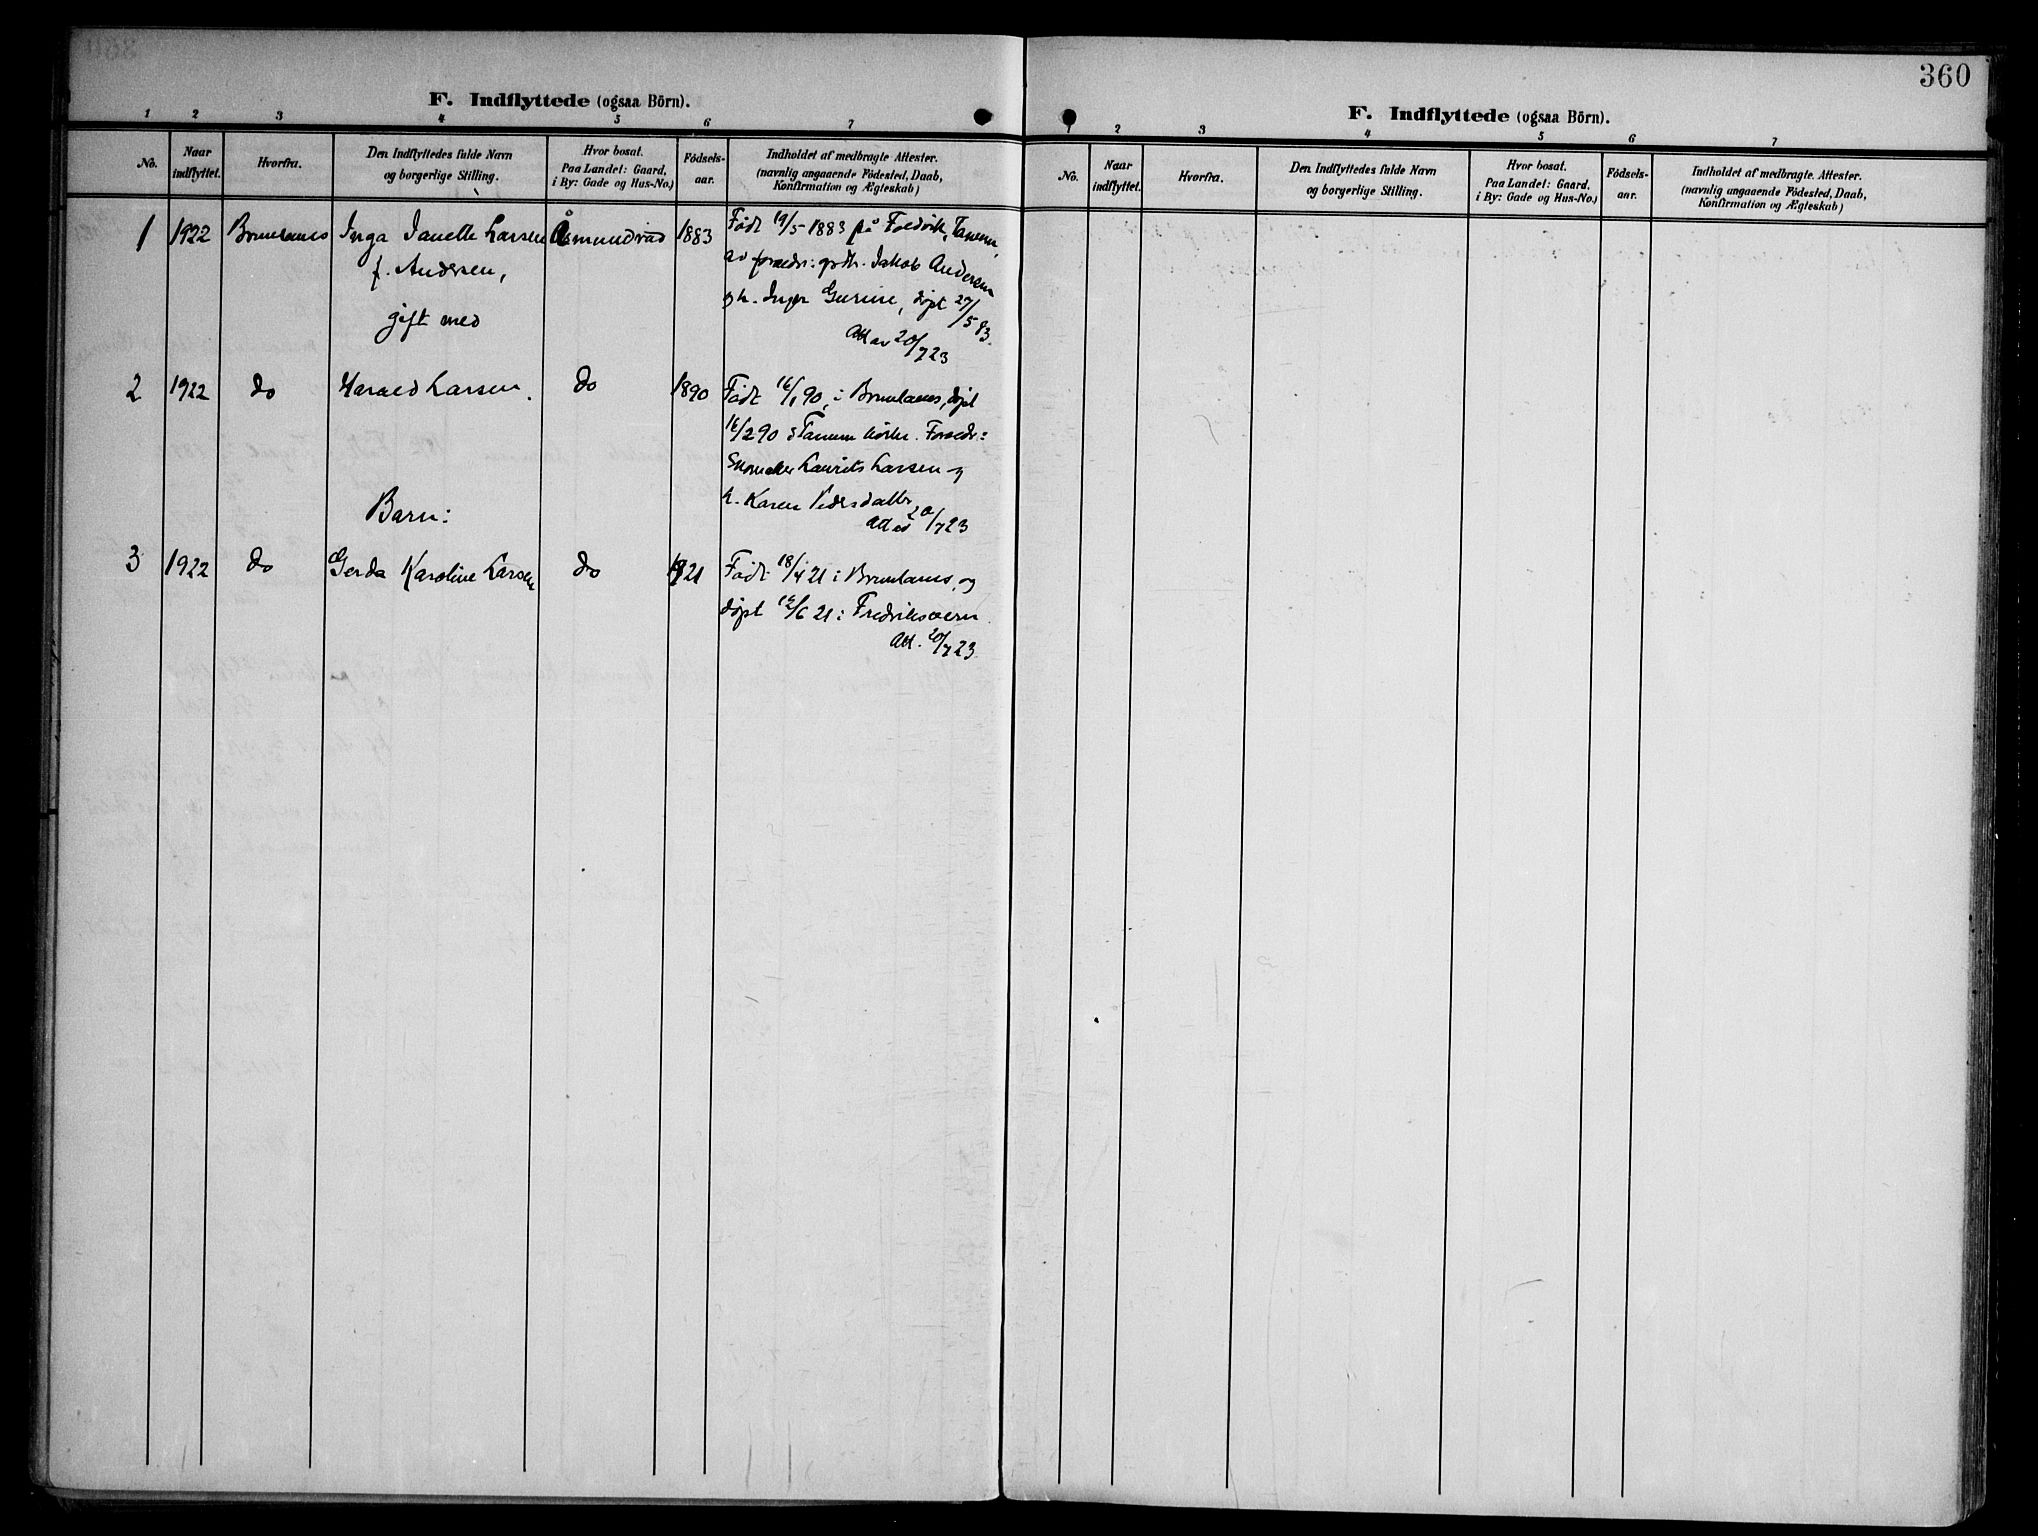 360
F. Indflyttede (ogsaa Börn).
1 2 3 4 5 6 7
No.
Naar indflyttet.
Hvorfra.
Den Indflyttedes fulde Navn
og borgerlige Stilling.
Hvor bosat.
Paa Landet: Gaard,
i By: Gade og Hus-No.)
Fødsels-
aar.
Indholdet af medbragte Attester.
(navnlig angaaende Fødested, Daab,
Konfirmation og Ægteskab)
1 1922 Brunlanes Inga Janelle Larsen Åsmundrød 1883 Født 19/5-1883 på Fredvik, Tanum,
f. Andersen, av foreldr: grdbr. Jakob Andersen
gift med og h. Inger Gurine, døpt 27/5 83.
Att av 20/7 23
2 1922 do Harald Larsen. do 1890 Født 16/1 90, i Brunlanes, døpt
16/2 90 i Tanum kirke. Foreldr:
Skomaker Laurits Larsen og
h. Karen Pedersdatter
Barn: Att av 20/7 23
3 1922 do Gerda Karoline Larsen do 1921 Født 18/4 21 i Brunlanes, og
døpt 12/6 21 i Fredriksvern.
Att. 20/7 23.
F. Indflyttede (ogsaa Börn).
1 2 3 4 5 6 7
No.
Naar
indflyttet.
Hvorfra.
Den Indflyttedes fulde Navn
og borgerlige Stilling.
Hvor bosat.
Paa Landet: Gaard.
i By: Gade og Hus-No.)
Fødsels-
aar.
Indholdet af medbragte Attester.
(navnlig angaaende Fødested, Daab,
Konfirmation og Ægteskab)